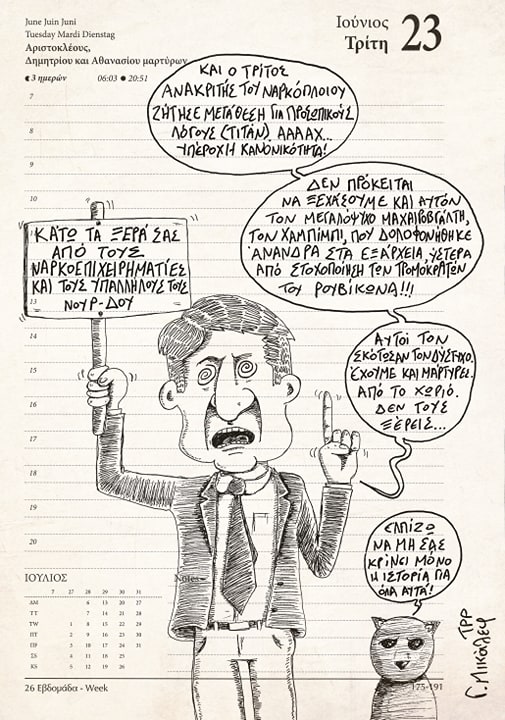 June Juin Juni
Tuesday Mardi Dienstag
Αριστοκλέους,
Δημητρίου και Αθανασίου μαρτύρων
3 ημερών 06:03 20:51
Ιούνιος
Τρίτη
23
ΚΑΙ Ο ΤΡΙΤΟΣ
ΑΝΑΚΡΙΤΗΣ ΤΟΥ ΝΑΡΚΟΠΛΟΙΟΥ
ΖΗΤΗΣΕ ΜΕΤΑΘΕΣΗ ΓΙΑ ΠΡΟΣΩΠΙΚΟΥΣ
ΛΟΓΟΥΣ (ΤΙΤΑΝ). ΑΑΑΑΧ...
ΥΠΕΡΟΧΗ ΚΑΝΟΝΙΚΟΤΗΤΑ!
ΔΕΝ ΠΡΟΚΕΙΤΑΙ
ΝΑ ΞΕΧΑΣΟΥΜΕ ΚΑΙ ΑΥΤΟΝ
ΤΟΝ ΜΕΓΑΛΟΨΥΧΟ ΜΑΧΑΙΡΟΒΓΑΛΤΗ,
ΤΟΝ ΧΑΜΠΙΜΠΙ, ΠΟΥ ΔΟΛΟΦΟΝΗΘΗΚΕ
ΑΝΑΝΔΡΑ ΣΤΑ ΕΞΑΡΧΕΙΑ, ΥΣΤΕΡΑ
ΑΠΟ ΣΤΟΧΟΠΟΙΗΣΗ ΤΩΝ ΤΡΟΜΟΚΡΑΤΩΝ
ΤΟΥ ΡΟΥΒΙΚΩΝΑ!!!
ΑΥΤΟΙ ΤΟΝ
ΣΚΟΤΩΣΑΝ ΤΟΝ ΔΥΣΤΥΧΟ.
ΈΧΟΥΜΕ ΚΑΙ ΜΑΡΤΥΡΕΣ
ΑΠΟ ΤΟ ΧΩΡΙΟ.
ΔΕΝ ΤΟΥΣ
ΞΕΡΕΙΣ...
ΚΑΤΩ ΤΑ ΞΕΡΑ ΣΑΣ
ΑΠΟ ΤΟΥΣ
ΝΑΡΚΟΕΠΙΧΕΙΡΗΜΑΤΙΕΣ
ΚΑΙ ΤΟΥΣ ΥΠΑΛΛΗΛΟΥΣ ΤΟΥΣ
ΝΟΥΡ-ΔΟΥ
ΕΛΠΙΖΩ
ΝΑ ΜΗ ΣΑΣ
ΚΡΙΝΕΙ ΜΟΝΟ
Η ΙΣΤΟΡΙΑ ΓΙΑ
ΌΛΑ ΑΥΤΑ!
7
8
9
10
13
14
15
16
17
18
19
20
ΙΟΥΛΙΟΣ
Notes
7 27 28 29 30 31
ΔΜ 6 13 20 27
ΤΤ 7 14 21 28
TW 1 8 15 22 29
ΠΤ 2 9 16 23 30
ΠF 3 10 17 24 31
ΣS 4 11 18 25
ΚS 5 12 19 26
26 Εβδομάδα - Week
175-191
TPP
Γ. Μικάλεφ